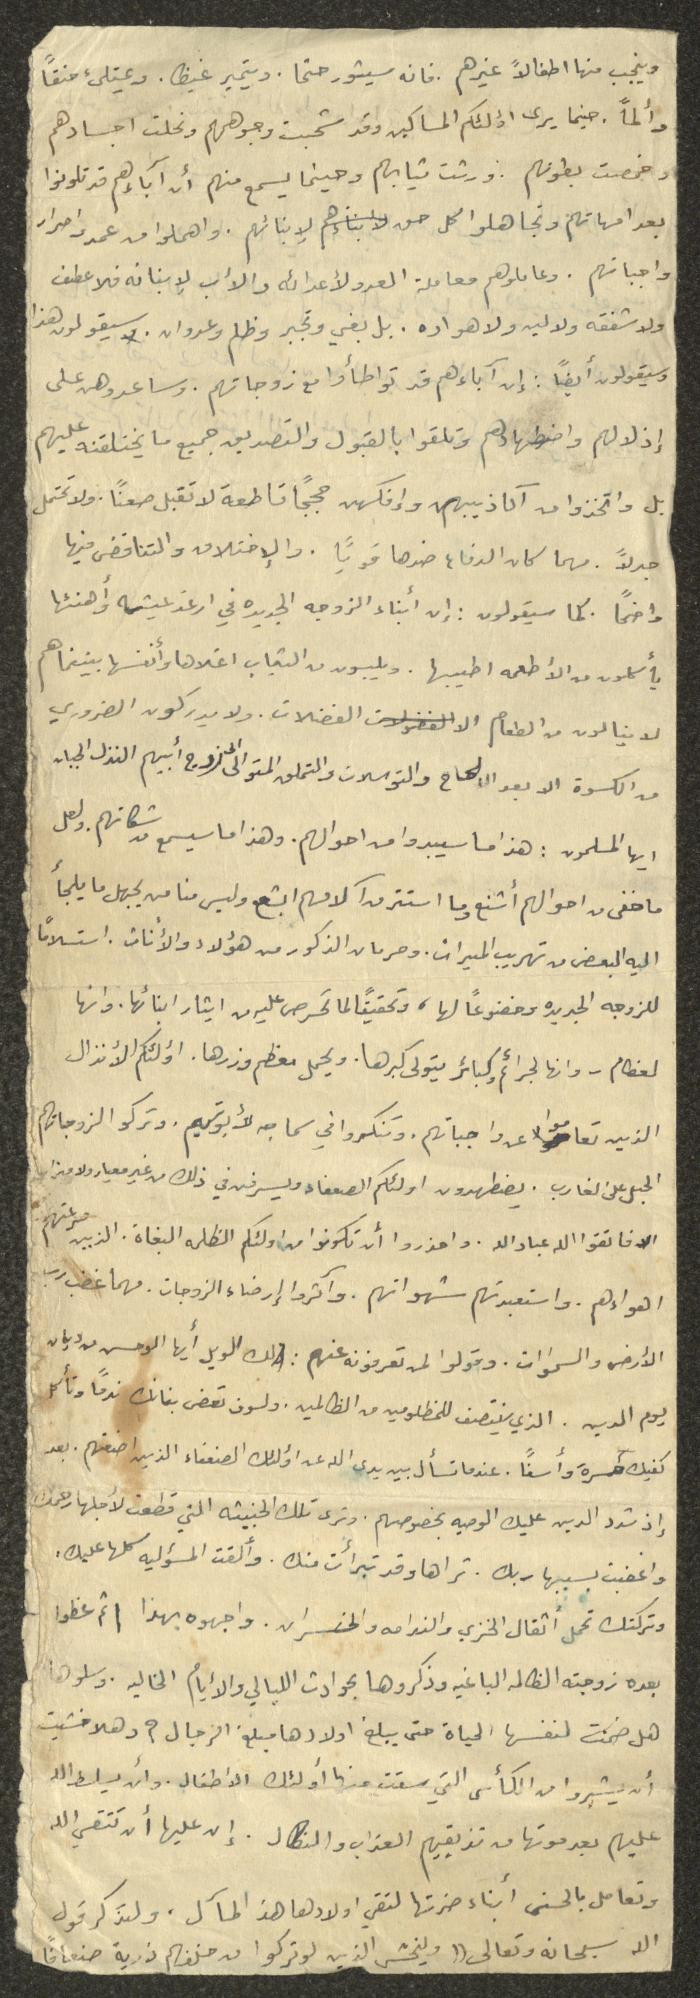 وينجب منها اطفالاً غيرهم . فانه سيثور حتما . ويتميز غيظا . ويمتلئ حنقاً
وألماً . حينما يرى اؤلئكم المساكين وقد شحبت وجوههم ونحلت اجسادهم
وخمصت بطونهم . ورثت ثيابهم وحينما يسمع منهم أن آباءهم قد تلونوا
بعد امهاتهم وتجاهلوا كل حق لأبنائهم لإبنائهم . واهملوا من عمد واصرار
واجباتهم . وعاملوهم معاملة العدو لأعدائه والأب لإبنائه فلا عطف
ولا شفقه ولا لين ولا هواده . بل بغي وتجبر وظلم وعدوان . سيقولون هذا
وسيقولون أيضاً : إن آباءهم قد تواطأوا مع زوجاتهم . وساعدوهن على
إذلالهم واضطهادهم وتلقوا بالقبول والتصديق جميع ما يختلقنه عليهم
بل واتخذوا من آكاذيبهن وإفكهن حججاً قاطعة لا تقبل ضعناً . ولا تحتمل
جدلاً . مهما كان الدفاع ضدها قوياً . والإختلاق والتناقض فيها
واضحاً . كما سيقولون : إن أبناء الزوجه الجديده في ارغد عيشه وأهنئها
يأكلون من الأطعمه اطيبها . ويلبسون من الثياب اغلاها وأنفسها بينما هم
لا ينالون من الطعام الا الفضلات الفضلات . ولا يدركون الضروري
من الكسوة الا بعد الالحاح والتوسلات والتملق المتوالي لزوج أبيهم النذل الجبان
ايها المسلمون : هذا ما سيبدوا من احوالهم . وهذا ما سيسمع من شكاتهم . ولعل
ما خفى من احوالهم أشنع وما استتر من آلامهم ابشع وليس منا من يجهل ما يلجأ
اليه البعض من تهريب الميراث . وحرمان الذكور من هؤلاء والأناث . استسلامًا
للزوجه الجديده وخضوعاً لها ، وتحقيقًا لما تحرص عليه من ايثار ابنائها . وانها
لعظائم - وانها لجرائم وكبائر يتولى كبرها . ويحمل معظم وزرها . اؤلئكم الأنذال
الذين تعاموا عن واجباتهم . وتنكروا في سماجه لأبوتهم . وتركوا لزوجاتهم
الحبل على الغارب . يضطهدون اولئكم الضعفاء ويسرفن في ذلك من غير معيار ولا ميزان
الا فاتقوا الله عباد الله . واحذروا أن تكونوا من اولئكم الظلمه البغاة . الذين صرعتهم
اهواءهم . واستعبدتهم شهواتهم . وآثروا إرضاء الزوجات . مهما غضب رب
الأرض والسموات . وقولوا لمن تعرفونه عنهم : لك الويل أيها الوحس من ديان
يوم الدين . الذي ينتصف للمظلومين من الظالمين . ولسوف تعض بنانك ندمًا وتأكل
كفيك حسرة وأسفًا . عندما تسأل بين يدى الله عن اؤلئك الضعفاء الذين اضعتهم . بعد
إذ شدد الدين عليك الوصيه بخصوصهم . وترى تلك الخبيثه التي قطعت لأجلها رحمك
واغضبت بسببها ربك . تراها وقد تبرأت منك . وألقت المسؤليه كلها عليك .
وتركتك تحمل أثقال الخزي والندامه والخسران . واجهوه بهذا ثم عظوا
بعده زوجته الظالمه الباغيه وذكروها بحوادث الليالي والأيام الخاليه . وسلوها
هل ضمنت لنفسها الحياة حتى يبلغ اولادها مبلغ الرجال ؟ وهلا خشيت
أن يشربوا من الكأس التي سقت منها أولئك الأطفال . وأن يسلط الله
عليهم بعد موتها من تذيقهم العذاب والنكال . إن عليها أن تتقي الله
وتعامل بالحسنى أبناء ضرتها لتقي اولادها هذا المآل . ولتذكر قول
الله سبحانه وتعالى (( وليخش الذين لو تركوا من خلفهم ذرية ضعافًا